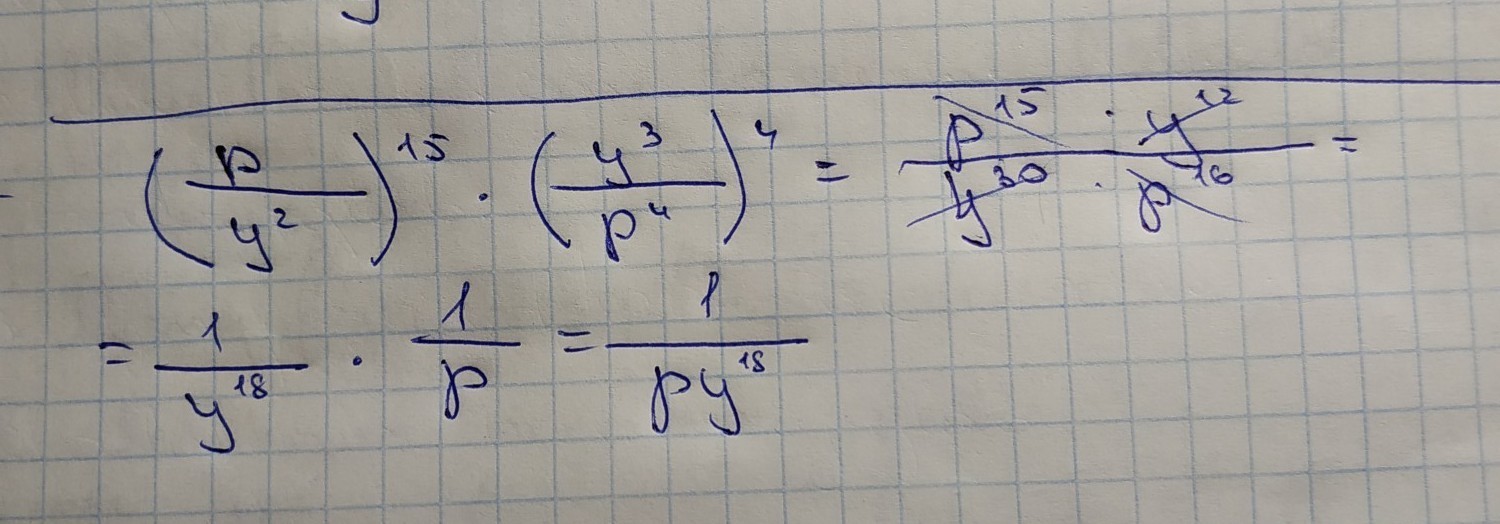 (p/y²)¹⁵ · (y³/p⁴)⁴ = (p¹⁵ · y¹²)/(y³⁰ · p¹⁶) =
= 1/y¹⁸ · 1/p = 1/(py¹⁸)